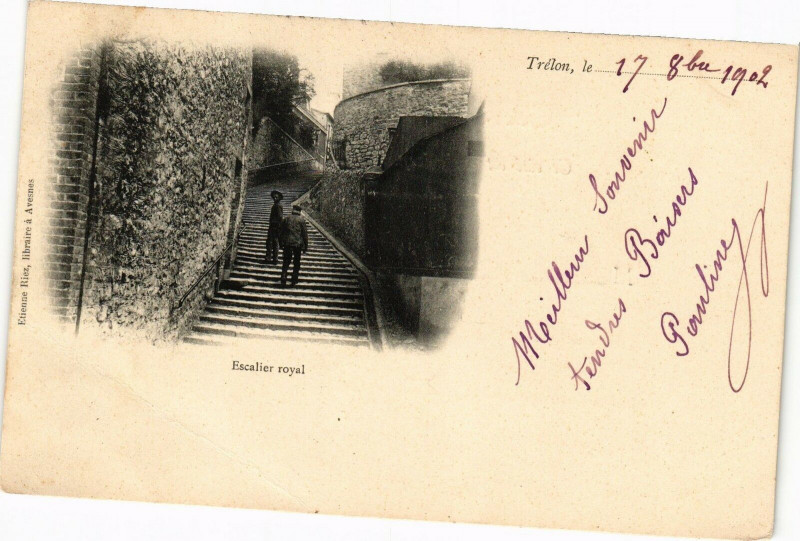 Trélon, le 17 8bre 1902
Meilleur Souvenir
tendres Baisers
Pauline
Escalier royal
Etienne Riez, libraire à Avesnes